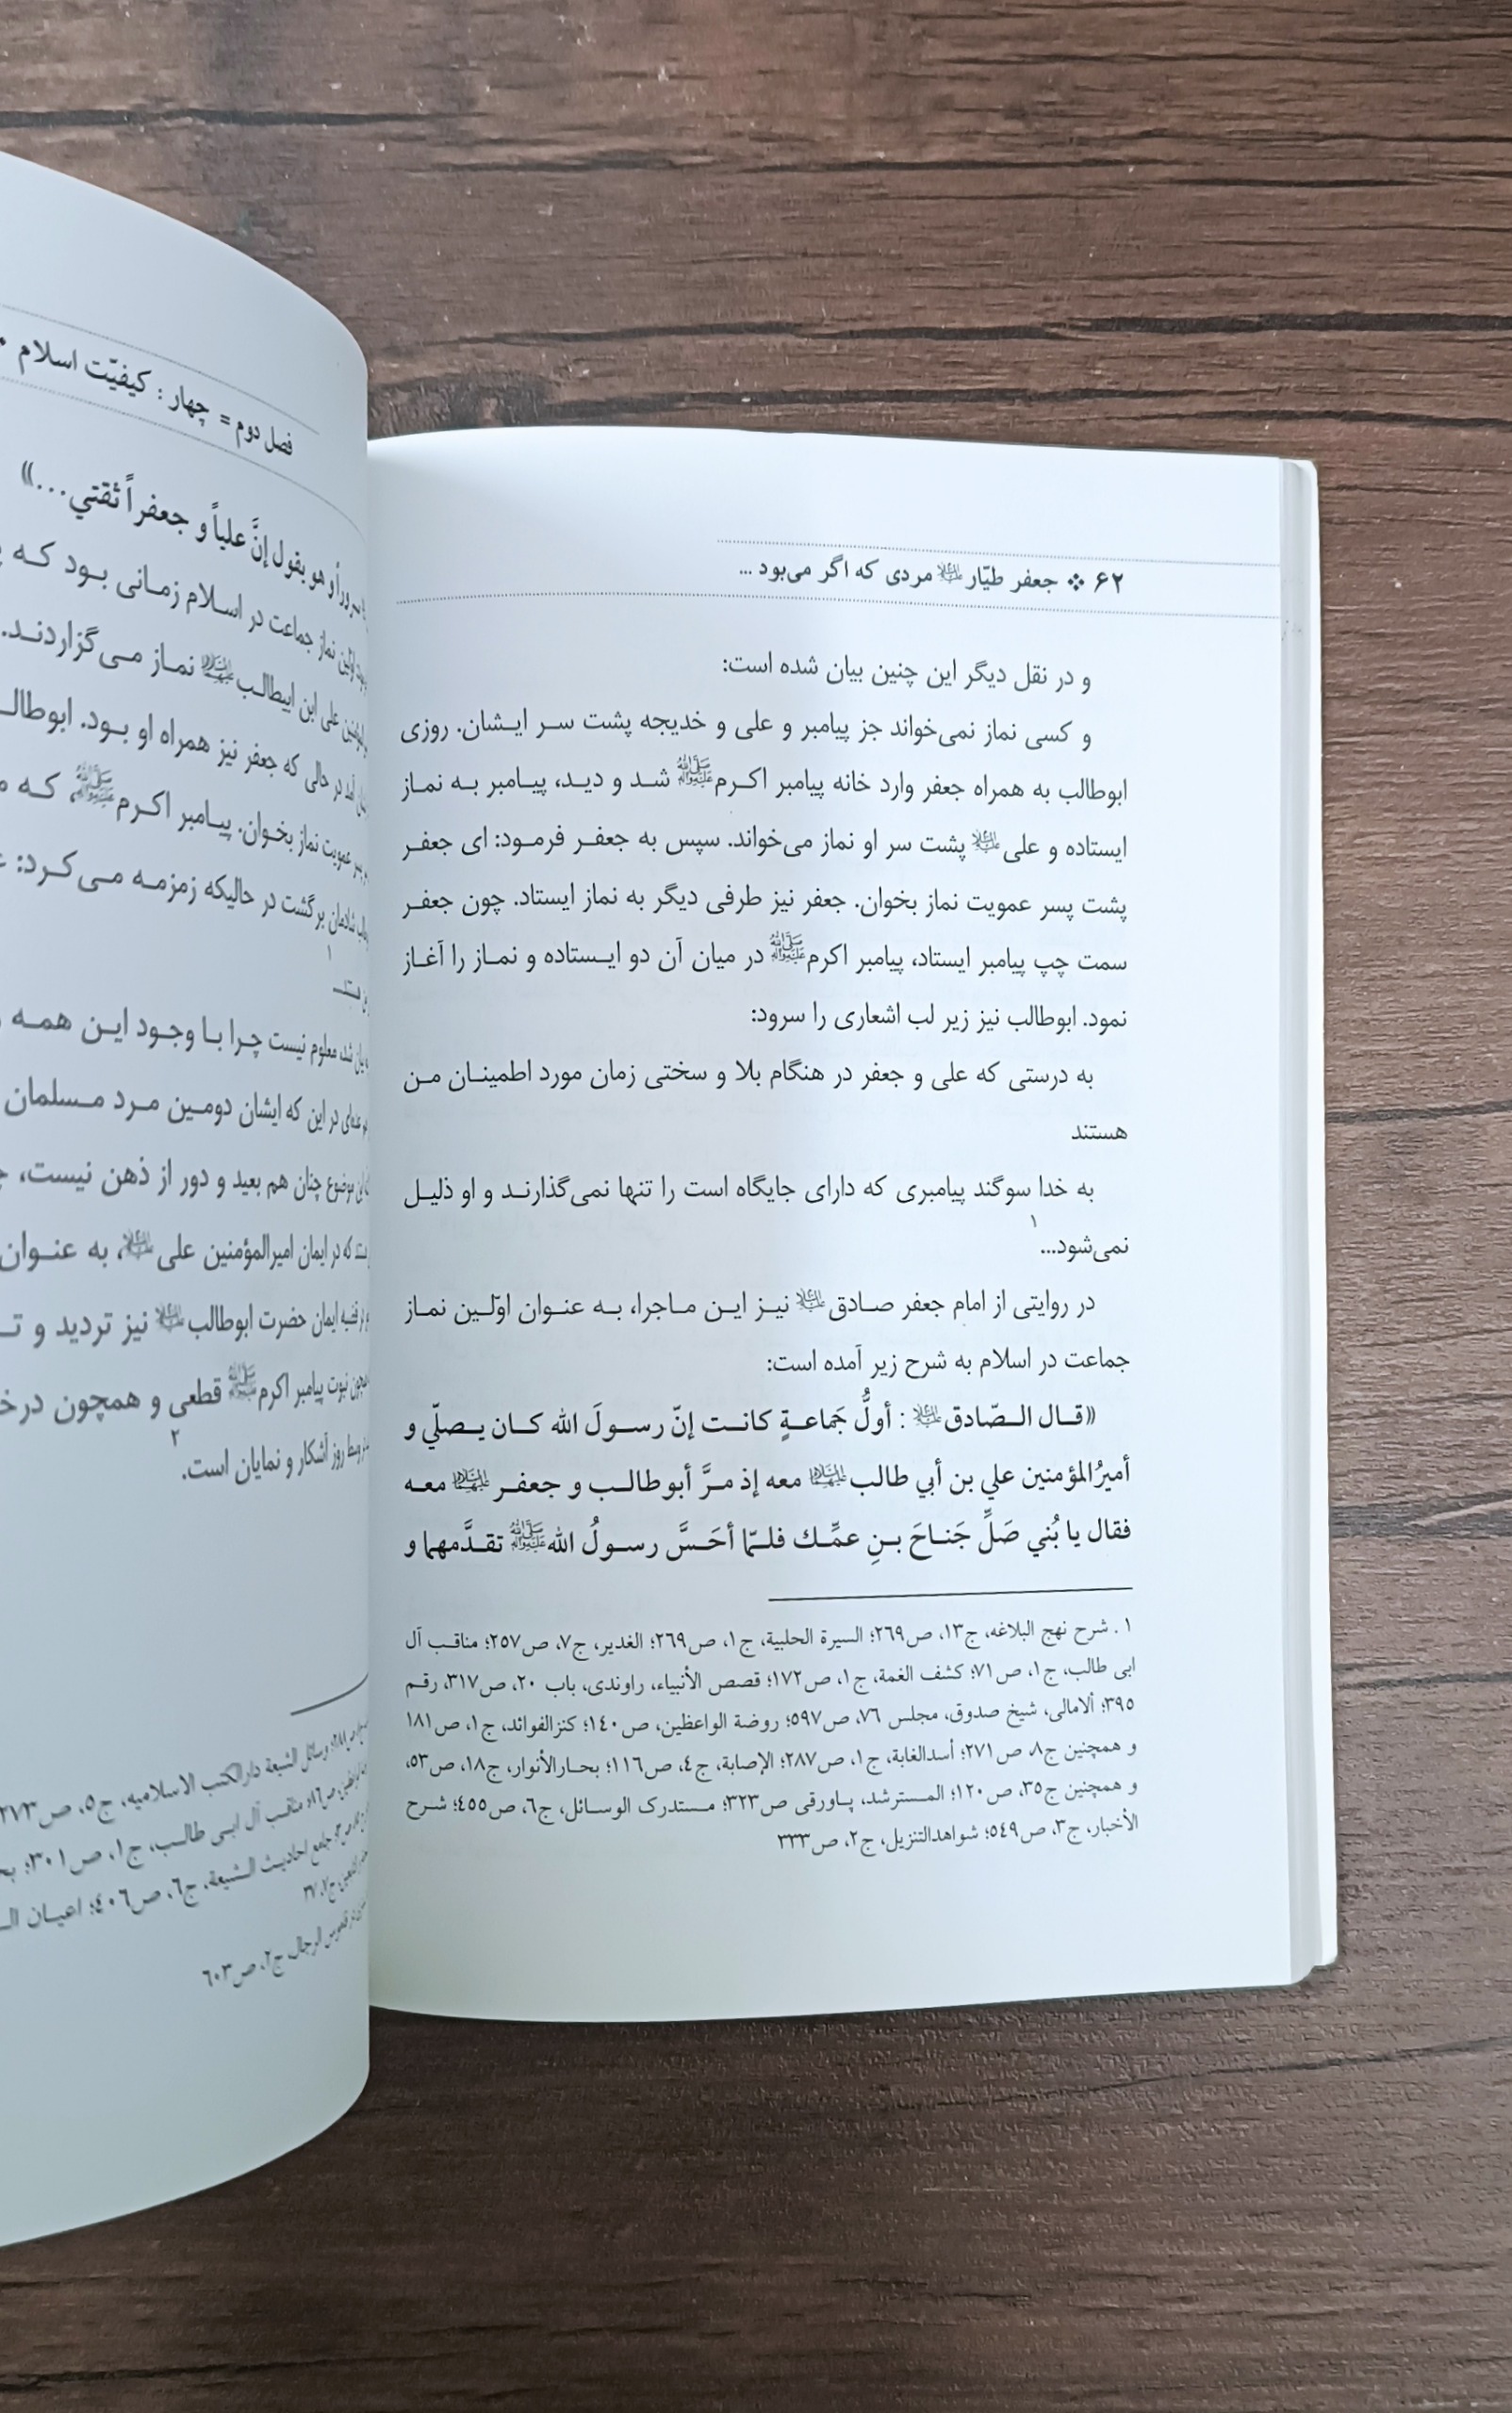 ۶۲ ❖ جعفر طیّار علیه‌السلام مردی که اگر می‌بود ...
و در نقل دیگر این چنین بیان شده است:
و کسی نماز نمی‌خواند جز پیامبر و علی و خدیجه پشت سر ایشان. روزی
ابوطالب به همراه جعفر وارد خانه پیامبر اکرمﷺ شد و دید، پیامبر به نماز
ایستاده و علی علیه‌السلام پشت سر او نماز می‌خواند. سپس به جعفر فرمود: ای جعفر
پشت پسر عمویت نماز بخوان. جعفر نیز طرفی دیگر به نماز ایستاد. چون جعفر
سمت چپ پیامبر ایستاد، پیامبر اکرمﷺ در میان آن دو ایستاده و نماز را آغاز
نمود. ابوطالب نیز زیر لب اشعاری را سرود:
به درستی که علی و جعفر در هنگام بلا و سختی زمان مورد اطمینان من
هستند
به خدا سوگند پیامبری که دارای جایگاه است را تنها نمی‌گذارند و او ذلیل
نمی‌شود...۱
در روایتی از امام جعفر صادق علیه‌السلام نیز این ماجرا، به عنوان اوّلین نماز
جماعت در اسلام به شرح زیر آمده است:
«قال الصّادق علیه‌السلام : أولُّ جَماعةٍ کانت إنّ رسولَ الله کان یصلّي و
أمیرُالمؤمنین علي بن أبي طالب علیهماالسلام معه إذ مرَّ أبوطالب و جعفر علیهماالسلام معه
فقال یا بُني صَلِّ جَناحَ بنِ عمِّك فلمّا أحَسَّ رسولُ اللهﷺ تقدَّمهما و
۱ . شرح نهج البلاغه، ج۱۳، ص۲٦۹؛ السیرة الحلبیة، ج۱، ص۲٦۹؛ الغدیر، ج۷، ص۲۵۷؛ مناقب آل
ابی طالب، ج۱، ص۷۱؛ کشف الغمة، ج۱، ص۱۷۲؛ قصص الأنبیاء، راوندی، باب ۲۰، ص۳۱۷، رقم
۳۹۵؛ ألامالی، شیخ صدوق، مجلس ۷٦، ص۵۹۷؛ روضة الواعظین، ص۱٤۰؛ کنزالفوائد، ج۱، ص۱۸۱
و همچنین ج۸، ص۲۷۱؛ أسدالغابة، ج۱، ص۲۸۷؛ الإصابة، ج٤، ص۱۱٦؛ بحارالأنوار، ج۱۸، ص۵۳،
و همچنین ج۳۵، ص۱۲۰؛ المسترشد، پاورقی ص۳۲۳؛ مستدرک الوسائل، ج٦، ص٤۵۵؛ شرح
الأخبار، ج۳، ص۵٤۹؛ شواهدالتنزیل، ج۲، ص۳۳۳
فصل دوم = چهار : کیفیّت اسلام
و هو یقول إنَّ علیاً و جعفراً ثقتي...»
نماز جماعت در اسلام زمانی بود که
علی ابن ابیطالب علیهماالسلام نماز می‌گزاردند.
آمد در حالی که جعفر نیز همراه او بود.
پسر عمویت نماز بخوان. پیامبر اکرمﷺ، که
برگشت در حالیکه زمزمه می‌کرد:
۱
معلوم نیست چرا با وجود این همه
در این که ایشان دومین مرد مسلمان
موضوع چنان هم بعید و دور از ذهن نیست،
که در ایمان امیرالمؤمنین علی علیه‌السلام، به عنوان
قضیه ایمان حضرت ابوطالب علیه‌السلام نیز تردید و
نبوت پیامبر اکرمﷺ قطعی و همچون
وسط روز آشکار و نمایان است.۲
وسائل الشیعة دارالکتب الاسلامیه، ج۵، ص۳۷۳
مناقب آل ابی طالب، ج۱، ص۳۰۱؛
جامع احادیث الشیعة، ج٦، ص٤۰٦؛ اعیان
قاموس الرجال ج۲، ص٦۰۳